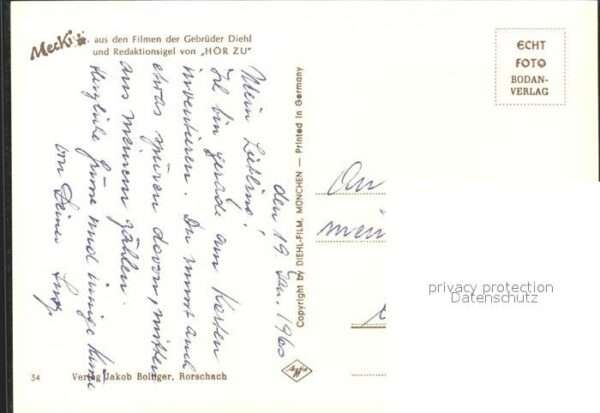 Mecki aus den Filmen der Gebrüder Diehl
und Redaktionsigel von „HÖR ZU"
ECHT
FOTO
BODAN-
VERLAG
den 19. Jan. 1960
Mein Liebling!
Ich bin gerade am Kasten
inventieren. Du musst auch
etwas spüren davon, mitten
aus meinem zählen.
Herzliche Grüsse und innige Küsse
von Deiner
Copyright by DIEHL-FILM, MÜNCHEN — Printed in Germany
An
mein
privacy protection
Datenschutz
34 Verlag Jakob Bolliger, Rorschach